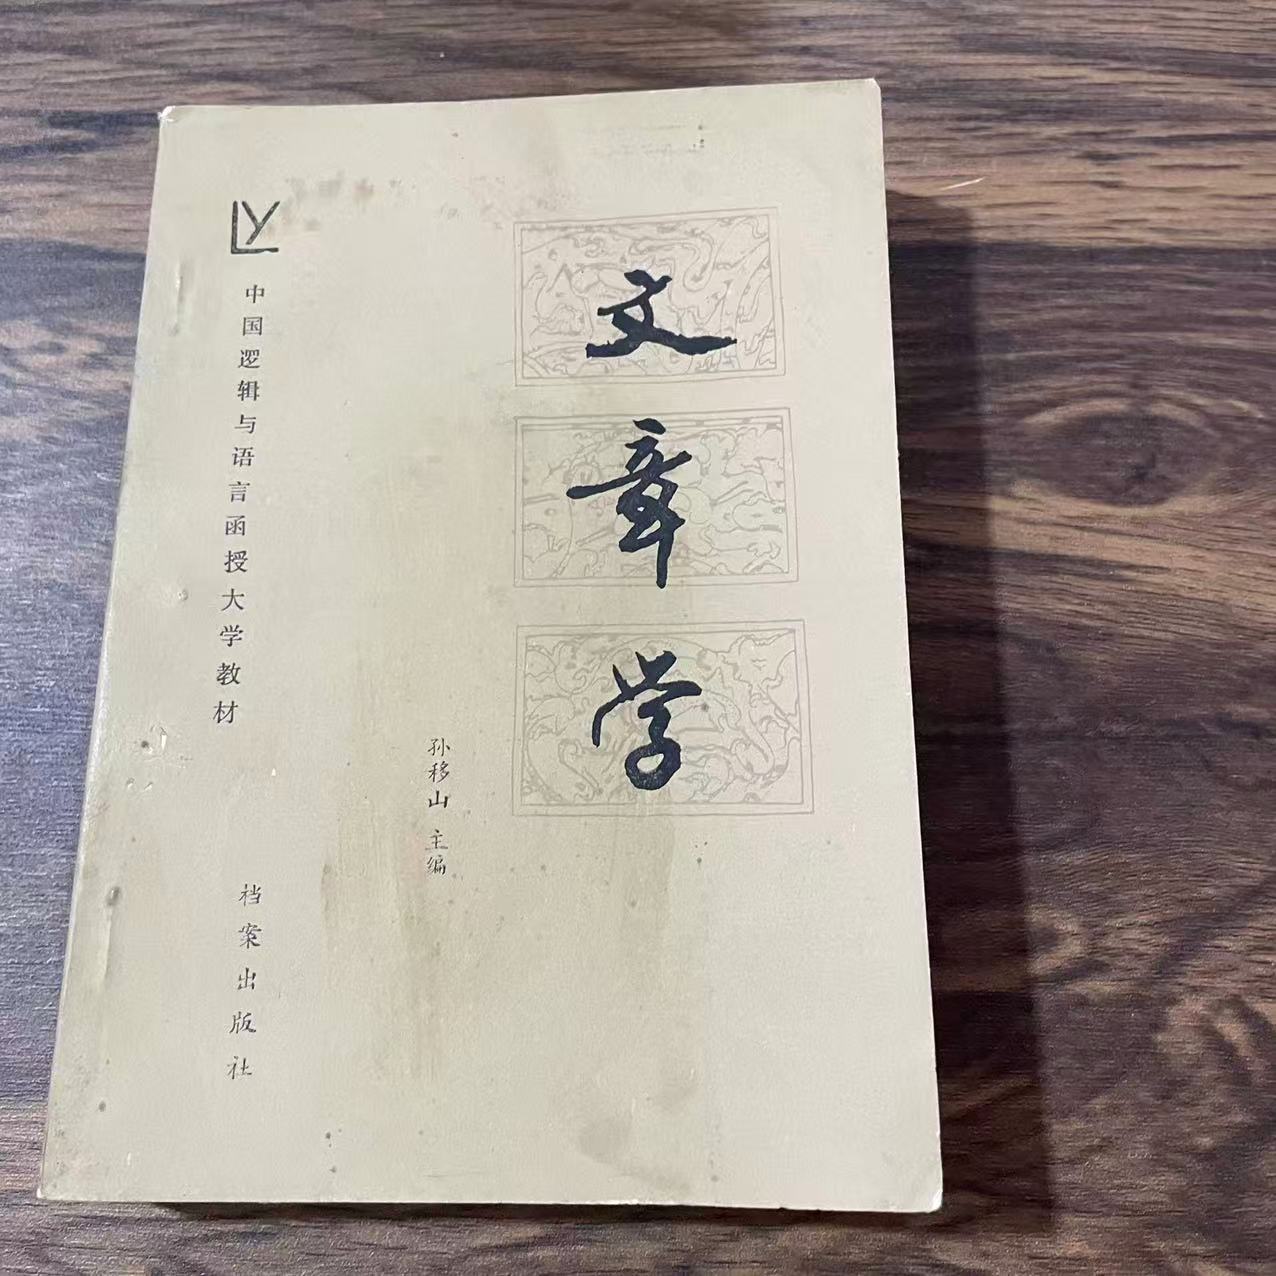 LY
中国逻辑与语言函授大学教材
文章学
孙移山 主编
档案出版社